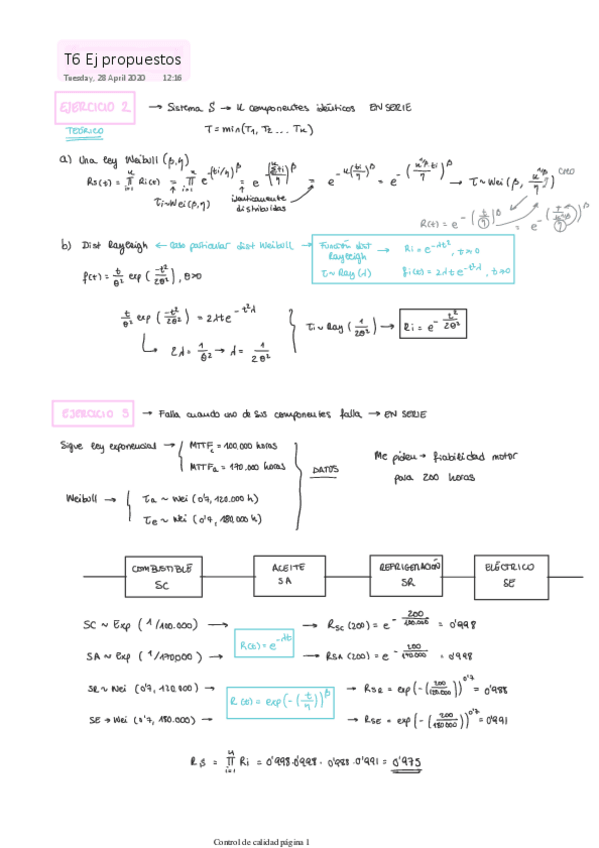 T6 Ej propuestos
Tuesday, 28 April 2020 12:16
EJERCICIO 2 → Sistema S → K componentes idénticos EN SERIE
TEÓRICO T = min(T1, T2 ... TK)
a) Una ley Weibull (β,η)
Rs(t) = ∏ Ri(t) = ∏ e^-(ti/η)^β
Ti~Wei(β,η) idénticamente distribuidas
R(t) = e^-(t/η)^β
b) Dist Rayleigh ← caso particular dist Weibull → Función dist Rayleigh → Ri = e^-λt², t>0
T ~ Ray (λ) fi(t) = 2λt e^-t²λ, t>0
f(t) = t/θ² exp (-t²/2θ²), θ>0
t/θ² exp (-t²/2θ²) = 2λt e^-t²λ
Ti ~ Ray (1/2θ²) → Ri = e^-t²/2θ²
2λ = 1/θ² → λ = 1/2θ²
EJERCICIO 5 → Falla cuando uno de sus componentes falla → EN SERIE
Sigue ley exponencial → MTTFc = 100.000 horas
MTTFa = 170.000 horas
DATOS
Me piden → fiabilidad motor
para 200 horas
Weibull → Ta ~ Wei (0'7, 120.000 h)
Te ~ Wei (0'7, 180.000 h)
COMBUSTIBLE SC
ACEITE SA
REFRIGERACIÓN SR
ELÉCTRICO SE
SC ~ Exp (1/100.000) → RSC (200) = e^-200/100.000 = 0'998
R(t) = e^-λt
SA ~ Exp (1/170000) → RSA (200) = e^-200/170.000 = 0'998
SR ~ Wei (0'7, 120.000) → RSR = exp(-(200/120.000))^0'7 = 0'988
R(t) = exp(-(t/η))^β
SE → Wei (0'7, 180.000) → RSE = exp(-(200/180000))^0'7 = 0'991
RS = ∏ Ri = 0'998 · 0'998 · 0'988 · 0'991 = 0'975
Control de calidad página 1